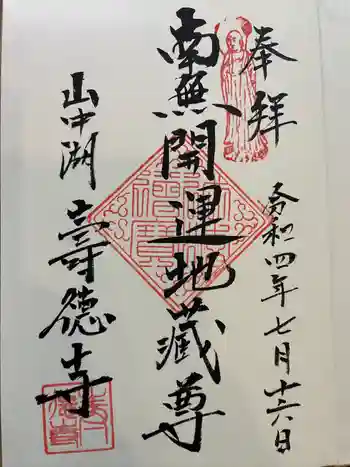 奉拝
令和四年七月十六日
南無開運地藏尊
山中湖
壽徳寺